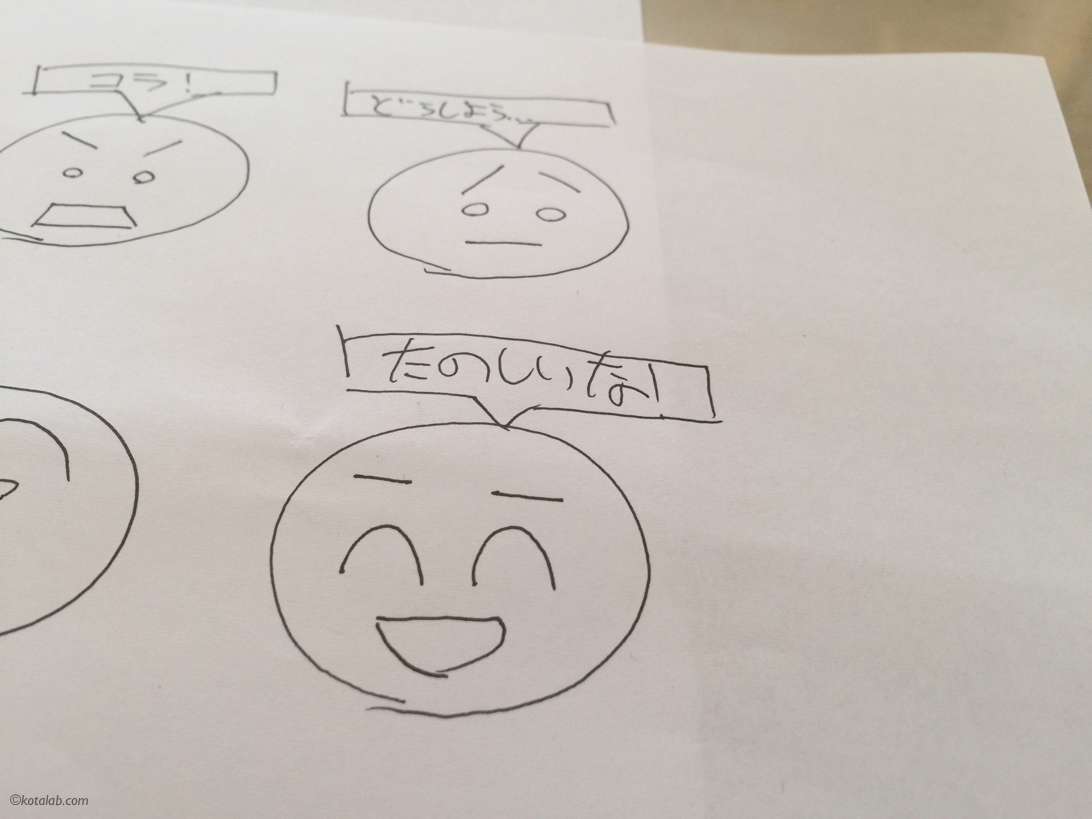 コラ!
どうしよう...
たのしいな!
©kotalab.com